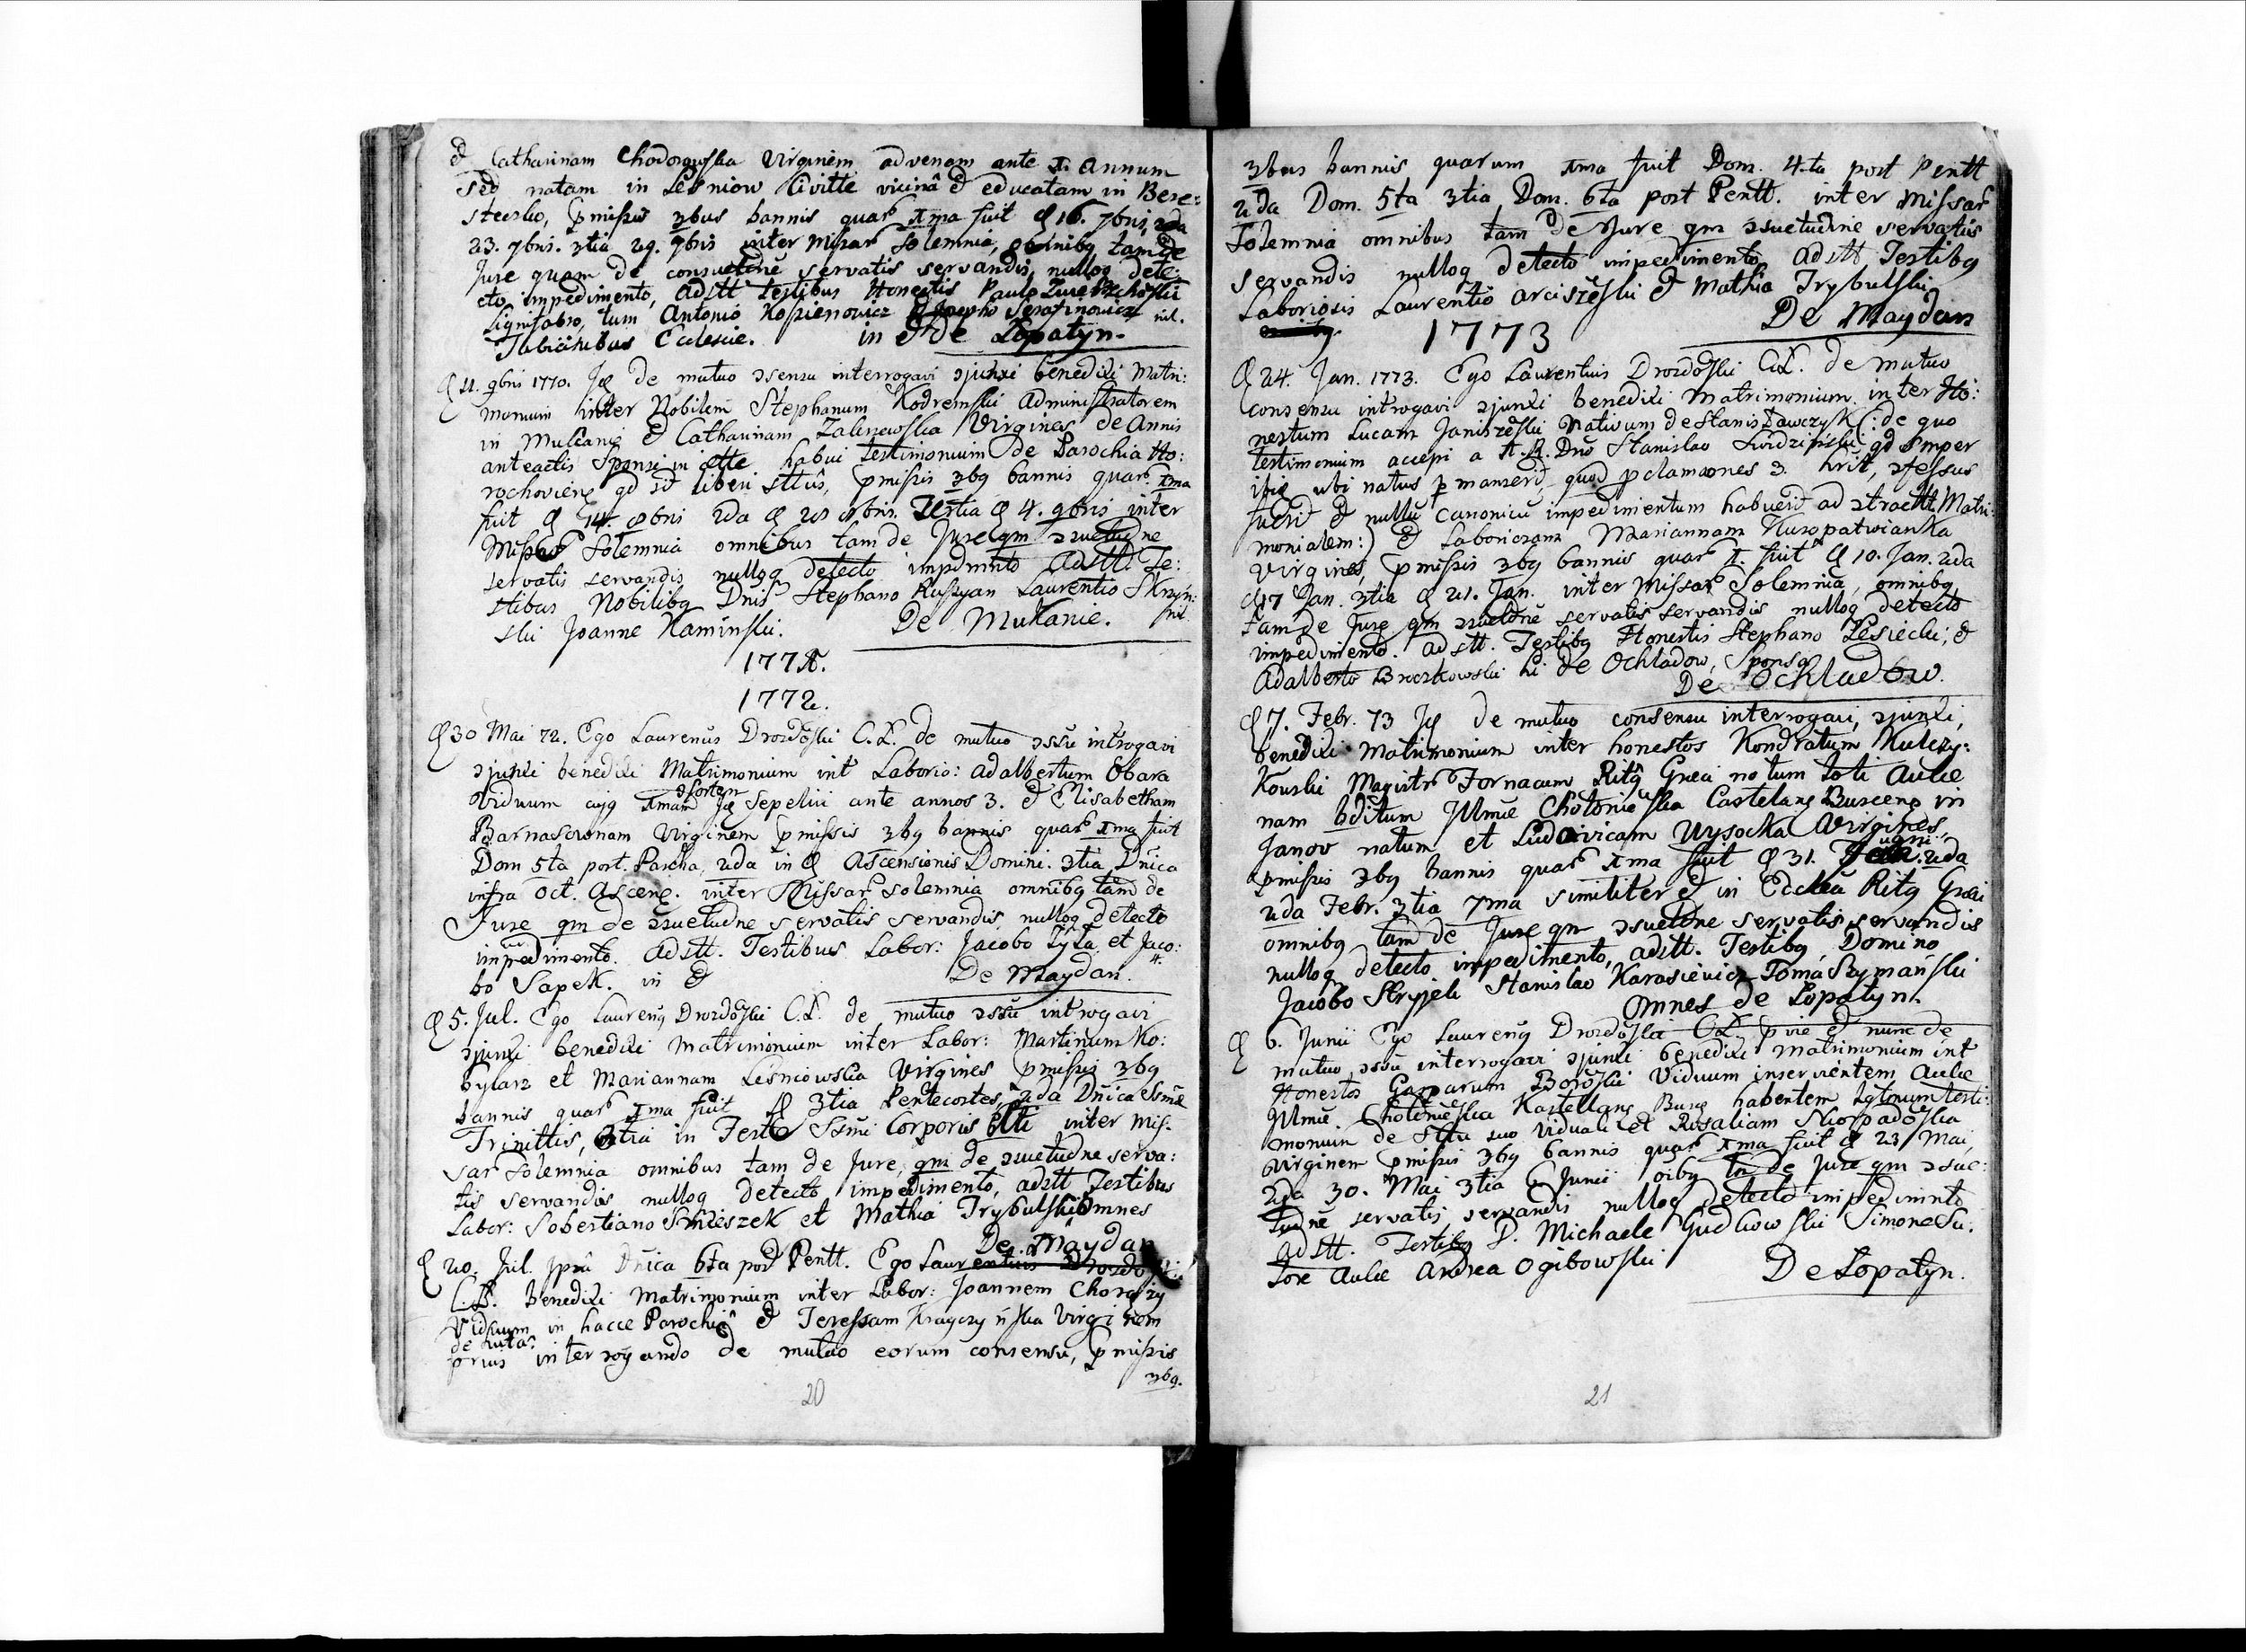 & Catharinam Chodorowska Virginem advenam ante 1. Annum
sed natam in Leśniow Civitte vicinâ & educatam in Bere:
steczko, pmissis 3bus bannis quar 1ma fuit d 16. 7bris, 2da
23. 7bris. 3tia 29. 7bris inter Missar Solemnia, omnibq tam de
Jure quam de consuetdne servatis servandis, nulloq dete:
cto impedimento, adstt testibus Honestis Paulo
Lignifabro, tum Antonio Kosienowicz & Josepho Serafinowicz nil.
Tubicinibus Ecclesiae. in & de Lopatyn.
d 11. 9bris 1770. Jd de mutuo ɔsensu interrogavi ɔjunxi benedixi Matri:
monium inter Nobilem Stephanum Kodremski Administratorem
in Mulcanie & Catharinam Zalenewska Virgines de Annis
anteactis Sponsi in ctte habui testimonium de Parochia Ho:
rochoviene qd sit liberi sttûs, pmissis 3bq bannis quar 1ma
fuit d 14. 8bris 2da d 28 8bris. Tertia d 4. 9bris inter
Missar Solemnia omnibus tam de Jure qm ɔsuetudne
servatis servandis nulloq detecto impdmnto Adstt. Te:
stibus Nobilibq Dnis Stephano Ruszyan Laurentio Skrzyn:
ski Joanne Kaminski. De Mukanie.
1771.
1772.
d 30 Mai 72. Ego Laurenus Drozdoski C.L. de mutuo ɔssu introgavi
ɔjunxi benedixi Matrimonium int Laborio: Adalbertum Obara
Viduum cujq 1mam ɔsortem Jd sepelivi ante annos 3. & Elisabetham
Barnasonam Virginem pmissis 3bq bannis quar 1ma fuit
Dom 5ta post. Pascha, 2da in d Ascensionis Domini. 3tia Dnica
infra Oct. Ascene. inter Missar solemnia omnibq tam de
Jure qm de ɔsuetudne servatis servandis nulloq detecto
impedimento. Adstt. Testibus Labor: Jacobo Tyta et Jaco:
bo Sapek. in & De Maydan.
d 5. Jul. Ego Laurenq Drozdoski C.L. de mutuo ɔssu introgavi
ɔjunxi benedixi matrimonium inter Labor: Martinum Ko:
bylarz et Mariannam Leśniowska Virgines pmissis 3bq
bannis quar 1ma fuit d 3tia Pentecostes, 2da Dnica Ssmae
Trinittis, 3tia in Festo Ssmi Corporis Xsti inter Mis:
sar Solemnia omnibus tam de Jure, qm de ɔsuetudne serva:
tis servandis nulloq detecto impedimento, adstt Testibus
Labor: Sobestiano Smieszek et Mathia Trybulski Omnes
De Maydan
d 20. Jul. ipsa Dnica 6ta post Pentt. Ego Laurentius Drozdoski
C.L. Benedixi Matrimonium inter Labor: Joannem Chorązy
Viduum in hacce Parochiâ & Teressam Krayczyńska Virginem
prius interrogando de mutuo eorum consensu, pmissis
3bq.
20
3bus bannis quarum 1ma fuit Dom. 4-ta post Pentt
2da Dom. 5ta 3tia Dom. 6ta post Pentt. inter Missar
Solemnia omnibus tam de Jure qm ɔsuetudine servatis
servandis nulloq detecto impedimento adstt Testibq
Laboriosis Laurentio Arciszeski & Mathia Trybulski
De Maydan
1773
d 24. Jan. 1773. Ego Laurentius Drozdoski C.L. de mutuo
consensu introgavi ɔjunxi benedixi Matrimonium inter Ho:
nestum Lucam Janiszeski Nativum de Stanisławczyk (: de quo
testimonium accepi a A.R. Dno Stanislao qd semper
ibiq ubi natus pmanserit, quod pclamaones 3. hrit, ɔfessus
fuerit & nullu canonicu impedimentum habuerit ad ɔtraectt Matri:
monialem:) & Laboriosam Mariannam Kuropatwianka
Virgines, pmissis 3bq bannis quar 1. fuit d 10. Jan. 2da
d 17 Jan. 3tia d 21. Jan. inter Missar Solemnia, omnibq,
tam de Jure qm ɔsuetdne servatis servandis nulloq detecto
impedimento. adstt. Testibq Honestis Stephano Lesiecki; &
Adalberto Broczkowski hi de Ochladow, Sponsq
De Ochladow.
d 7. Febr. 73 Jd de mutuo consensu interrogavi, ɔjunxi,
benedixi Matrimonium inter honestos Kondratum Kulczy:
kouski Magistr Fornacum Ritq Graeci notum toti Aulae
nam ɔditum Jllmae Chołonieska Castelanq Busceng in
Janov natum et Ludovicam Wysocka Virgines,
pmissis 3bq bannis quar 1ma fuit d 31. 2da
2da Febr. 3tia 7ma similiter & in Ecclea Ritq Graeci
omnibq tam de Jure qm ɔsuetdne servatis servandis
nulloq detecto impedimento, adstt. Testibq, Domino
Jacobo Stryjeli Stanislao Karasiewicz Toma Szymański
Omnes de Lopatyn.
d 6. Junii Ego Laurenq Drozdoski C.L. prie & nunc de
mutuo ɔssu interrogavi ɔjunxi benedixi matrimonium int
Honestos Gasparum Boroski Viduum inservientem Aulae
Jllmae. Choloneska Kastellang Busq habentem Lgtmum testi:
monium de Sttu suo viduali et Rosaliam Sliopadoska
virginem pmissis 3bq bannis quar 1ma fuit d 23 Mai,
2da 30. Mai 3tia 6 Junii oibq tm de Jure qm ɔsue:
tudne servatis servandis nulloq detecto impedimnto
adstt. Testibq D. Michaele Gudkowski Simone Su:
tore Aulae Andrea Ogibowski De Lopatyn.
21